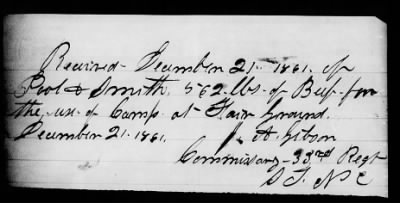 Received December 21. 1861. of
Pool & Smith. 562 lbs. of Beef for
the use of Camp at Fair Ground.
December 21. 1861.
A. Gibson
Commissary 33rd Regt
S T. N C